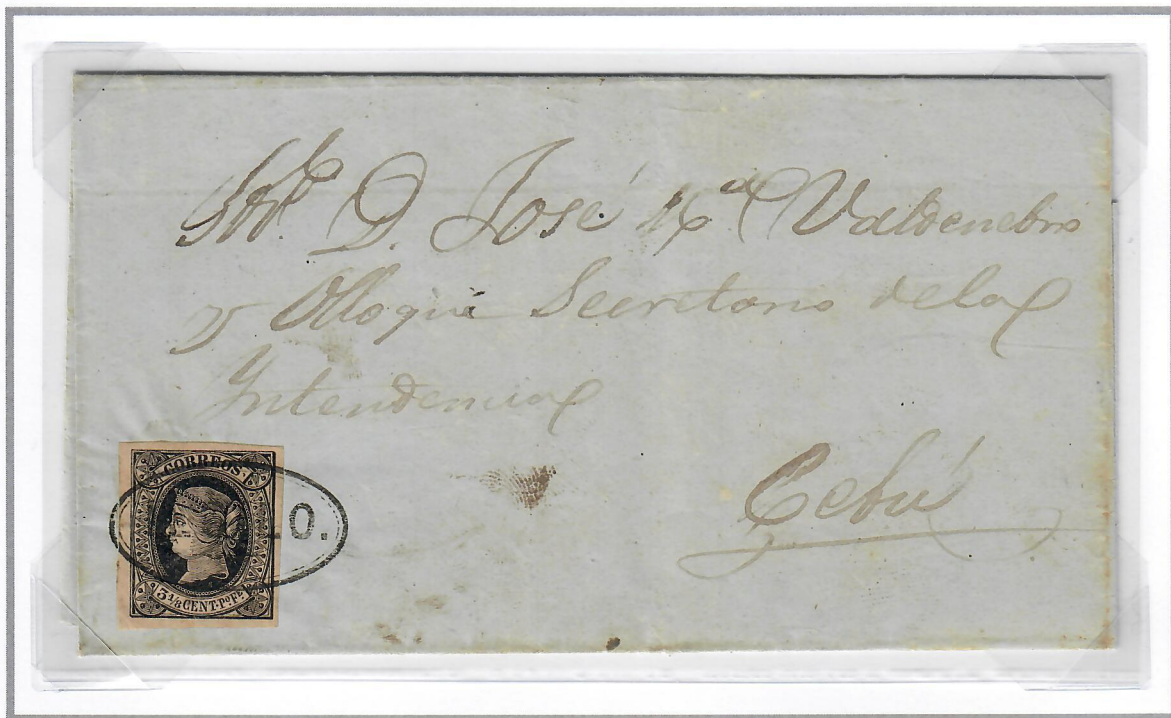 Sor. D. José Ma Valdenebro
y Olloqui Secretario dela
Intendencia
Cebú
CORREOS
O.
3 1/8 CENT. Po. Fe.